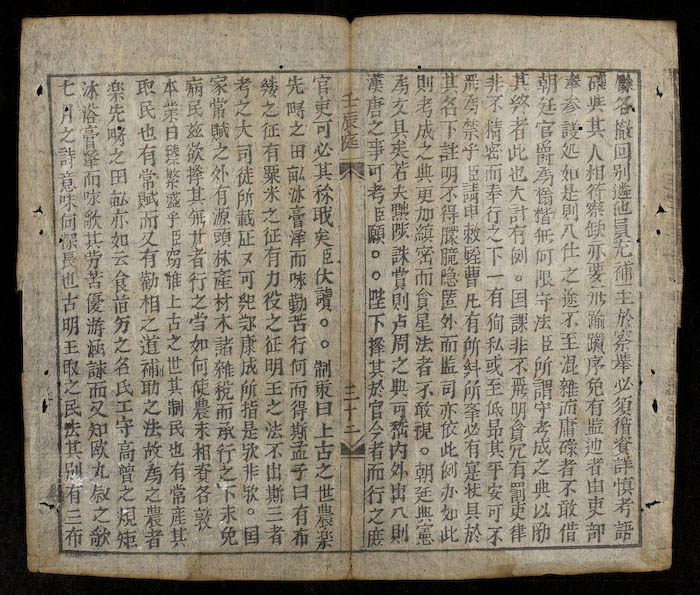 縣各撤回別遴他員充補至於察舉必須稽實詳慎考語
確與其人相符察缺亦要無踰躐序免有監迆者由吏部
奉參議処如是則入仕之途不至混雜而庸碌者不敢借
朝廷官爵為楷無何限守法臣所謂守考成之典以励
其終者此也大計有例。国課非不張明貪冗有罰吏律
非不精密而奉行之下一有狥私或至低昂其平安可不
張為禁乎臣請申敕曹凡有所糾所挙必有寔扶具於
其名下註明不得朦朧隐匿外而监司亦依此例办如此
則考成之典更加縝密而貪法者不敢視。朝廷典憲
為文具矣若夫黜陟誅賞則周之典可稽内外出入則
漢唐之事可考臣願。。陛下擇其於官今者而行之庶
壬辰庭
三十二
官吏可必其称职矣臣伏讀。。制策曰上古之世農楽
先畴之田畝沐膏澤而咏勤苦行何而得斯孟子曰有布
縷之征有粟米之征有力役之征明王之法不出斯三者
考之大司徒所載正又可康成所指是欤非欤。国
家常賦之外有源頭林産材木諸雜税而承行之下未免
病民玆欲擇其無者行之当如何使農末相資各敦
本業日臻繁盛乎臣窃惟上古之世其制民也有常産其
取民也有常賦而又有勸相之道補助之法故為之農者
楽先畴之田畝亦如云食之名氏工守高曾之規矩
沐浴膏澤而咏歌其劳苦優游涵詠而又知之歌
七月之詩意味何深長也古明王取之民法其別有三布